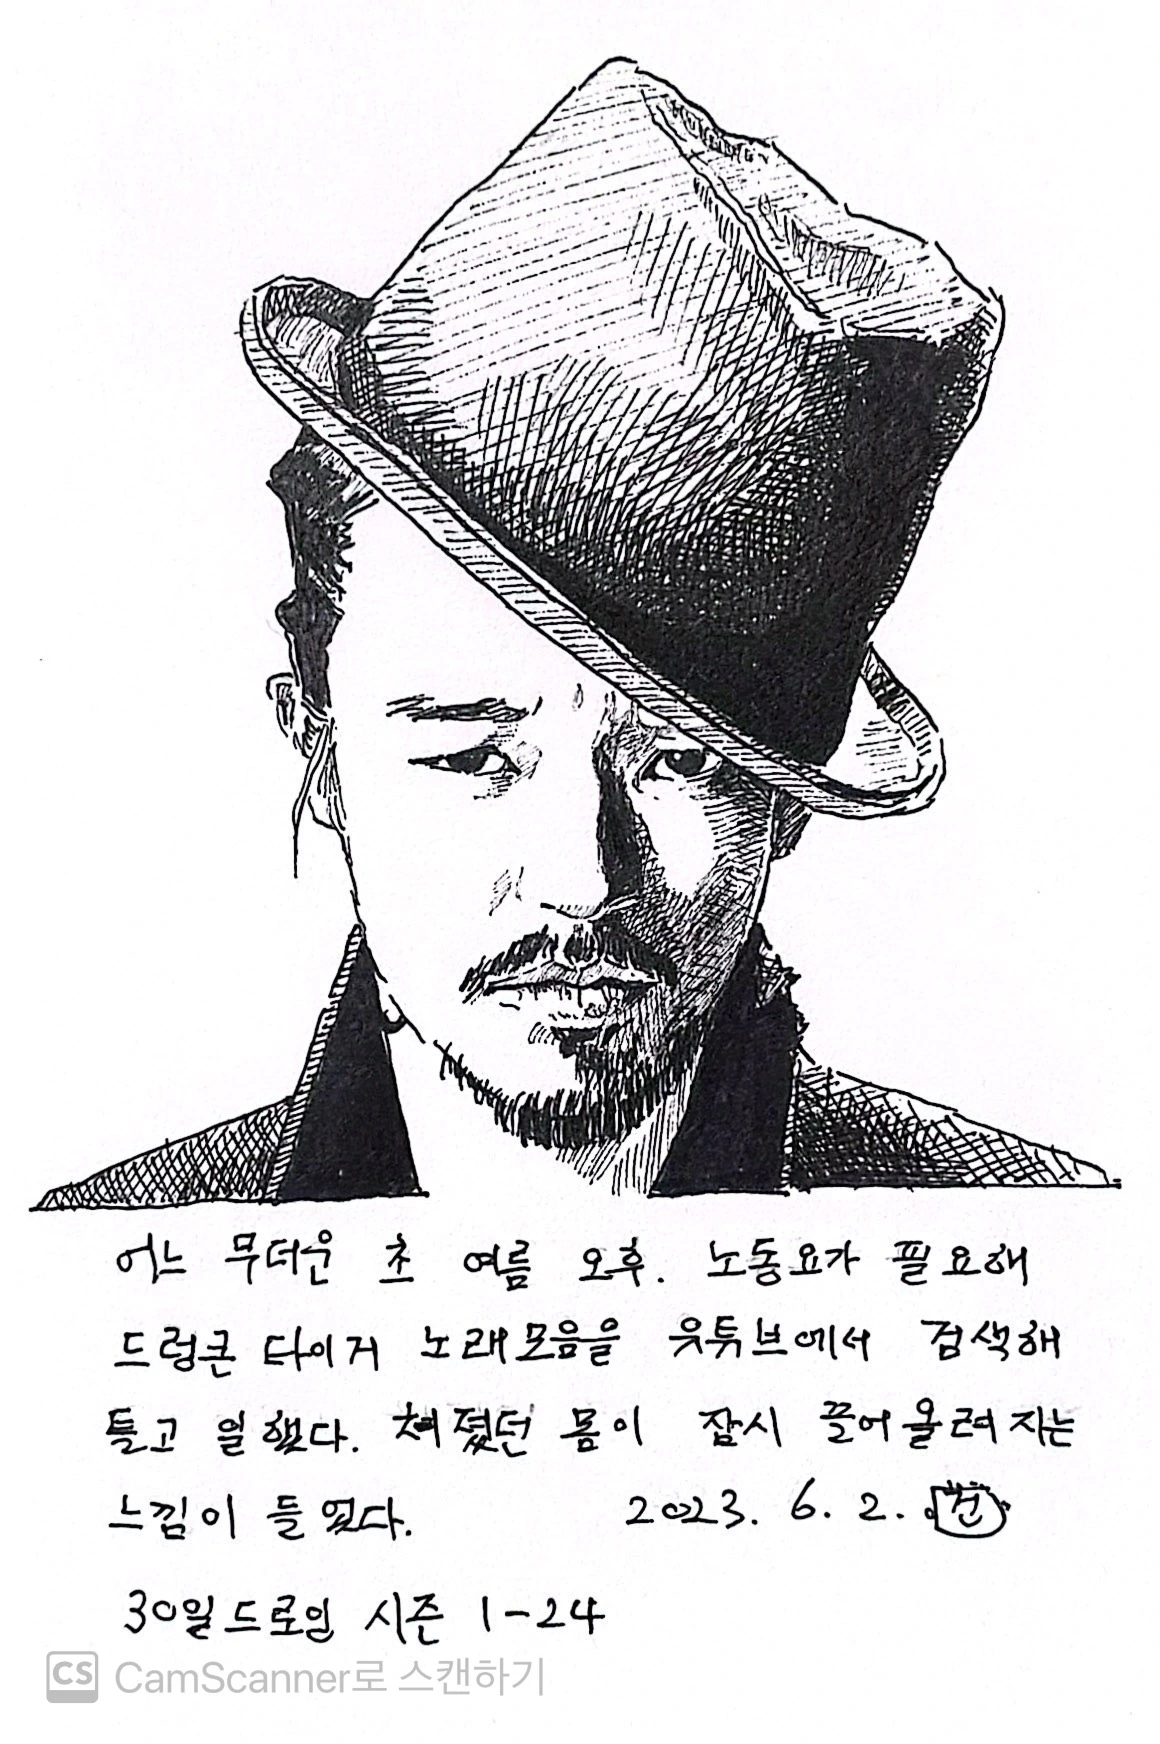 어느 무더운 초 여름 오후. 노동요가 필요해
드렁큰 타이거 노래모음을 유튜브에서 검색해
틀고 일했다. 쳐졌던 몸이 잠시 끌어올려지는
느낌이 들었다. 2023. 6. 2. 건
30일드로잉 시즌 1-24
CS CamScanner로 스캔하기